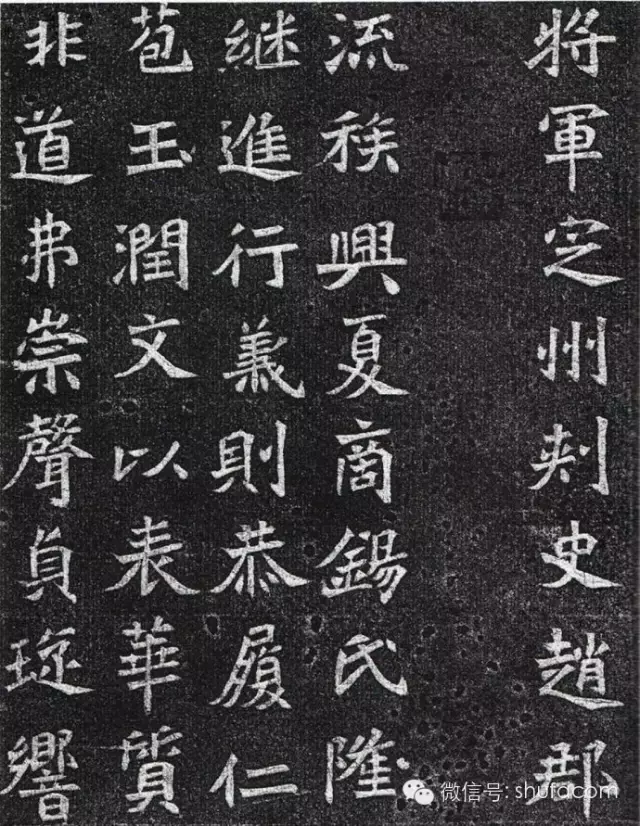 將軍定州刾史趙
流興夏商錫氏隆
継進行義則恭履仁
苞玉潤文以表華質
非道弗崇聲貞琁響
微信号: shufacom